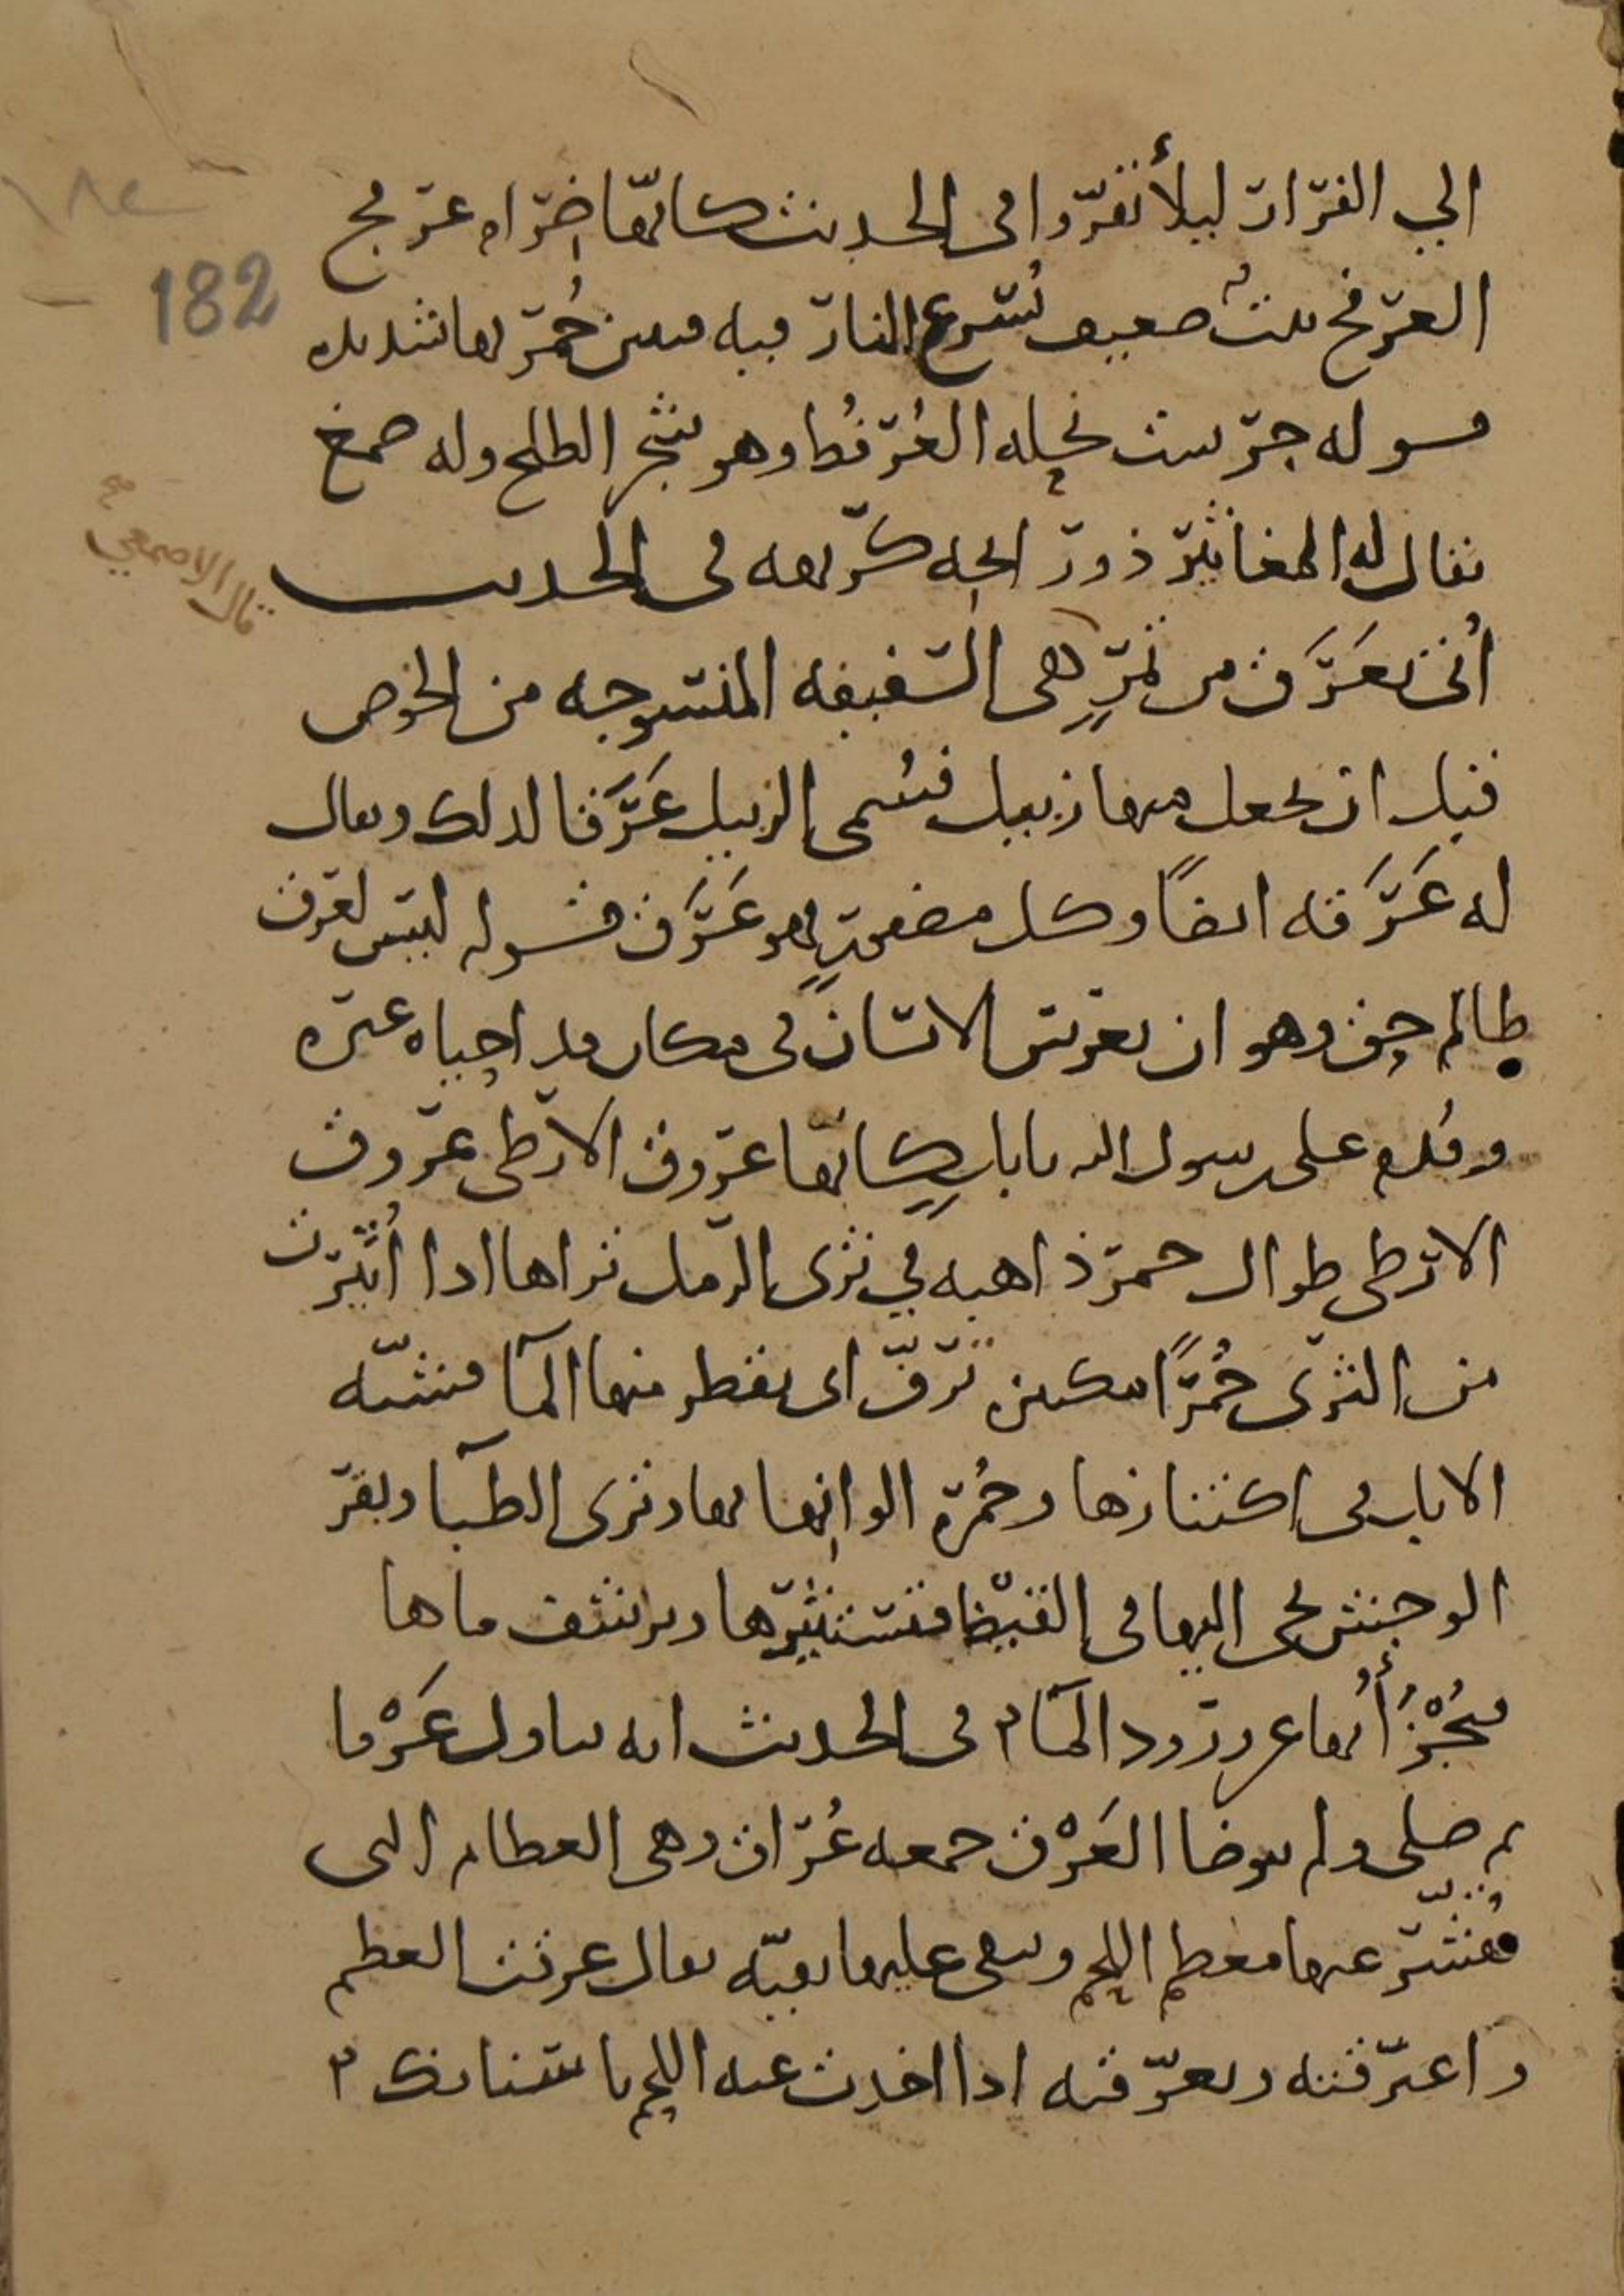 الي الفرار ليلا نفروا في الحديث كانها ضرام عرفج
العرفج نبت ضعيف تسرع النار فيه فيبين حمرتها شديده
قوله جرست نحله العرفط وهو شجر الطلح وله صمغ
يقال له المغافير ذو رائحه كريهه في الحديث
قال الاصمعي صح
أتى بعرق من تمر هي السفيفه المنسوجه من الخوص
قبل ان يجعل منها زبيل فسمى الزبيل عرقا لذلك ويقال
له عرقه ايضا وكل مضفور فهو عرق قوله ليس لعرق
ظالم حق وهو ان يغرس الانسان في مكان قد احياه غيره
وقدم على رسول الله بابل كانها عروق الارطى عروق
الارطى طوال حمر ذاهبه في ثرى الرمل تراها اذا أثيرت
من الثرى حمرا مكتنزه ترف اى يقطر منها الماء فشبه
الابل في اكتنازها وحمرة الوانها بها وترى الظباء وبقر
الوحش تجى اليها في القيظ فتستثيرها وترتشف ماها
فيجزأ بها عن ورود الماء في الحديث انه تناول عرقا
ثم صلى ولم يتوضا العرق جمعه عراق وهي العظام التي
يقشر عنها معظم اللحم ويبقى عليها بقيه يقال عرقت العظم
واعترقته وتعرقته اذا اخذت عنه اللحم باسنانك
182
١٨٢